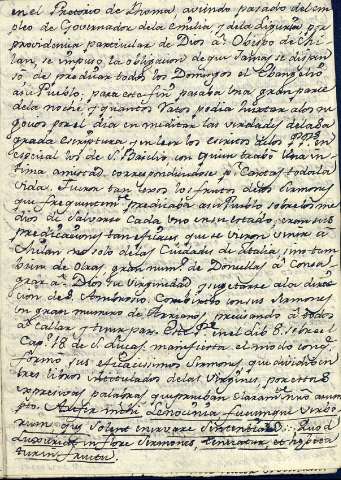 en el Pretorio de Roma, aviendo pasado del em-
pleo de Governador de la Emilia y de la Liguria, por
providencia particular de Dios â Obispo de Mi-
lan, se impuso la obligacion de que jamas se dispen-
só, de predicar todos los Domingos el Evangelio
asu Pueblo. para este fin pasaba una gran parte
dela noche, y quantos ratos podia hurtar alos ne-
gocios por el dia en meditar las verdades dela Sa-
grada Escriptura y en leer los escritos delos PP. en
especial los de S. Basilio con quien trabó una in-
tima amistad correspondiendose pr. Cartas toda la
vida. Fueron tan los frutos de los Sermones
que frequentemte. predicaba asu Pueblo sobre los me-
dios de salvarse cada uno en su estado; eran sus
predicaciones tan eficaces, que se vieron venir â
Milan no solo de las Ciudades de Italia, sino tam-
bien de otras, gran num. de Doncellas â Consa-
grar â Dios su Virginidad y sugetarse ala direc-
cion de S. Ambrosio. Combirtió con sus Sermones
un gran numero de Arrianos, precisando â todos
â callar y tener paz. Este Pe. en el lib. 8. sobre el
Cap. 18 de S. Lucas, manifiesta el modo con q
formó sus eficacissimos Sermones, que dividió en
tres libros intitulados delas Virgines, por estas
expresivas palabras que prueban claramte. mio asump-
to. Aufer mihi Lenocinia fucumque verbo-
rum, quæ solent enervare Sententias: Quod
Luxuriat in flore Sermonis, et hebeta
tur in fructu.